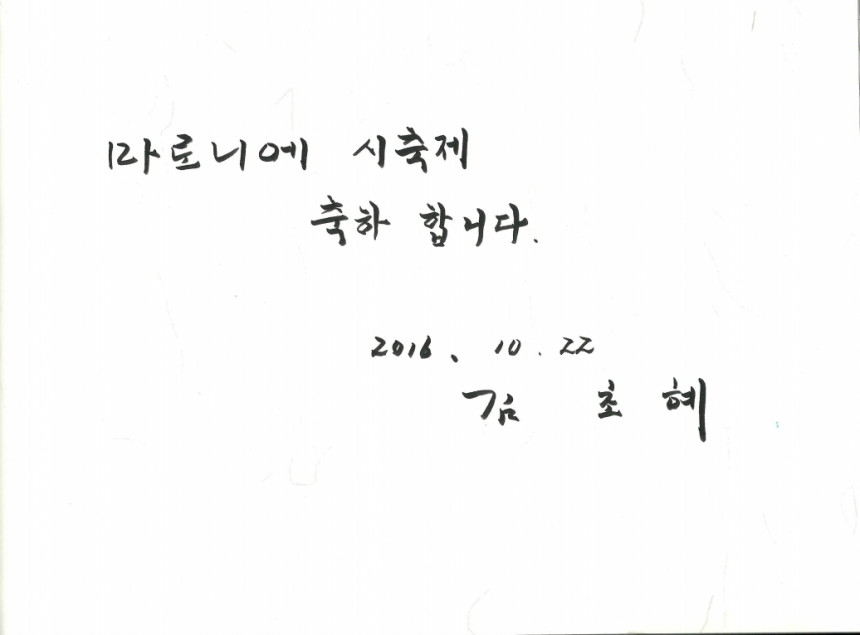 마로니에 시축제
축하 합니다.
2016. 10. 22
김 초 혜